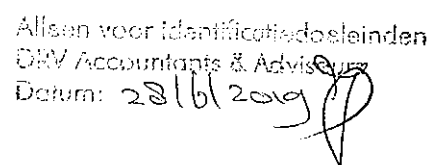 Alleen voor identificatiedoeleinden
DRV Accountants & Adviseurs
Datum: 28/6/2019